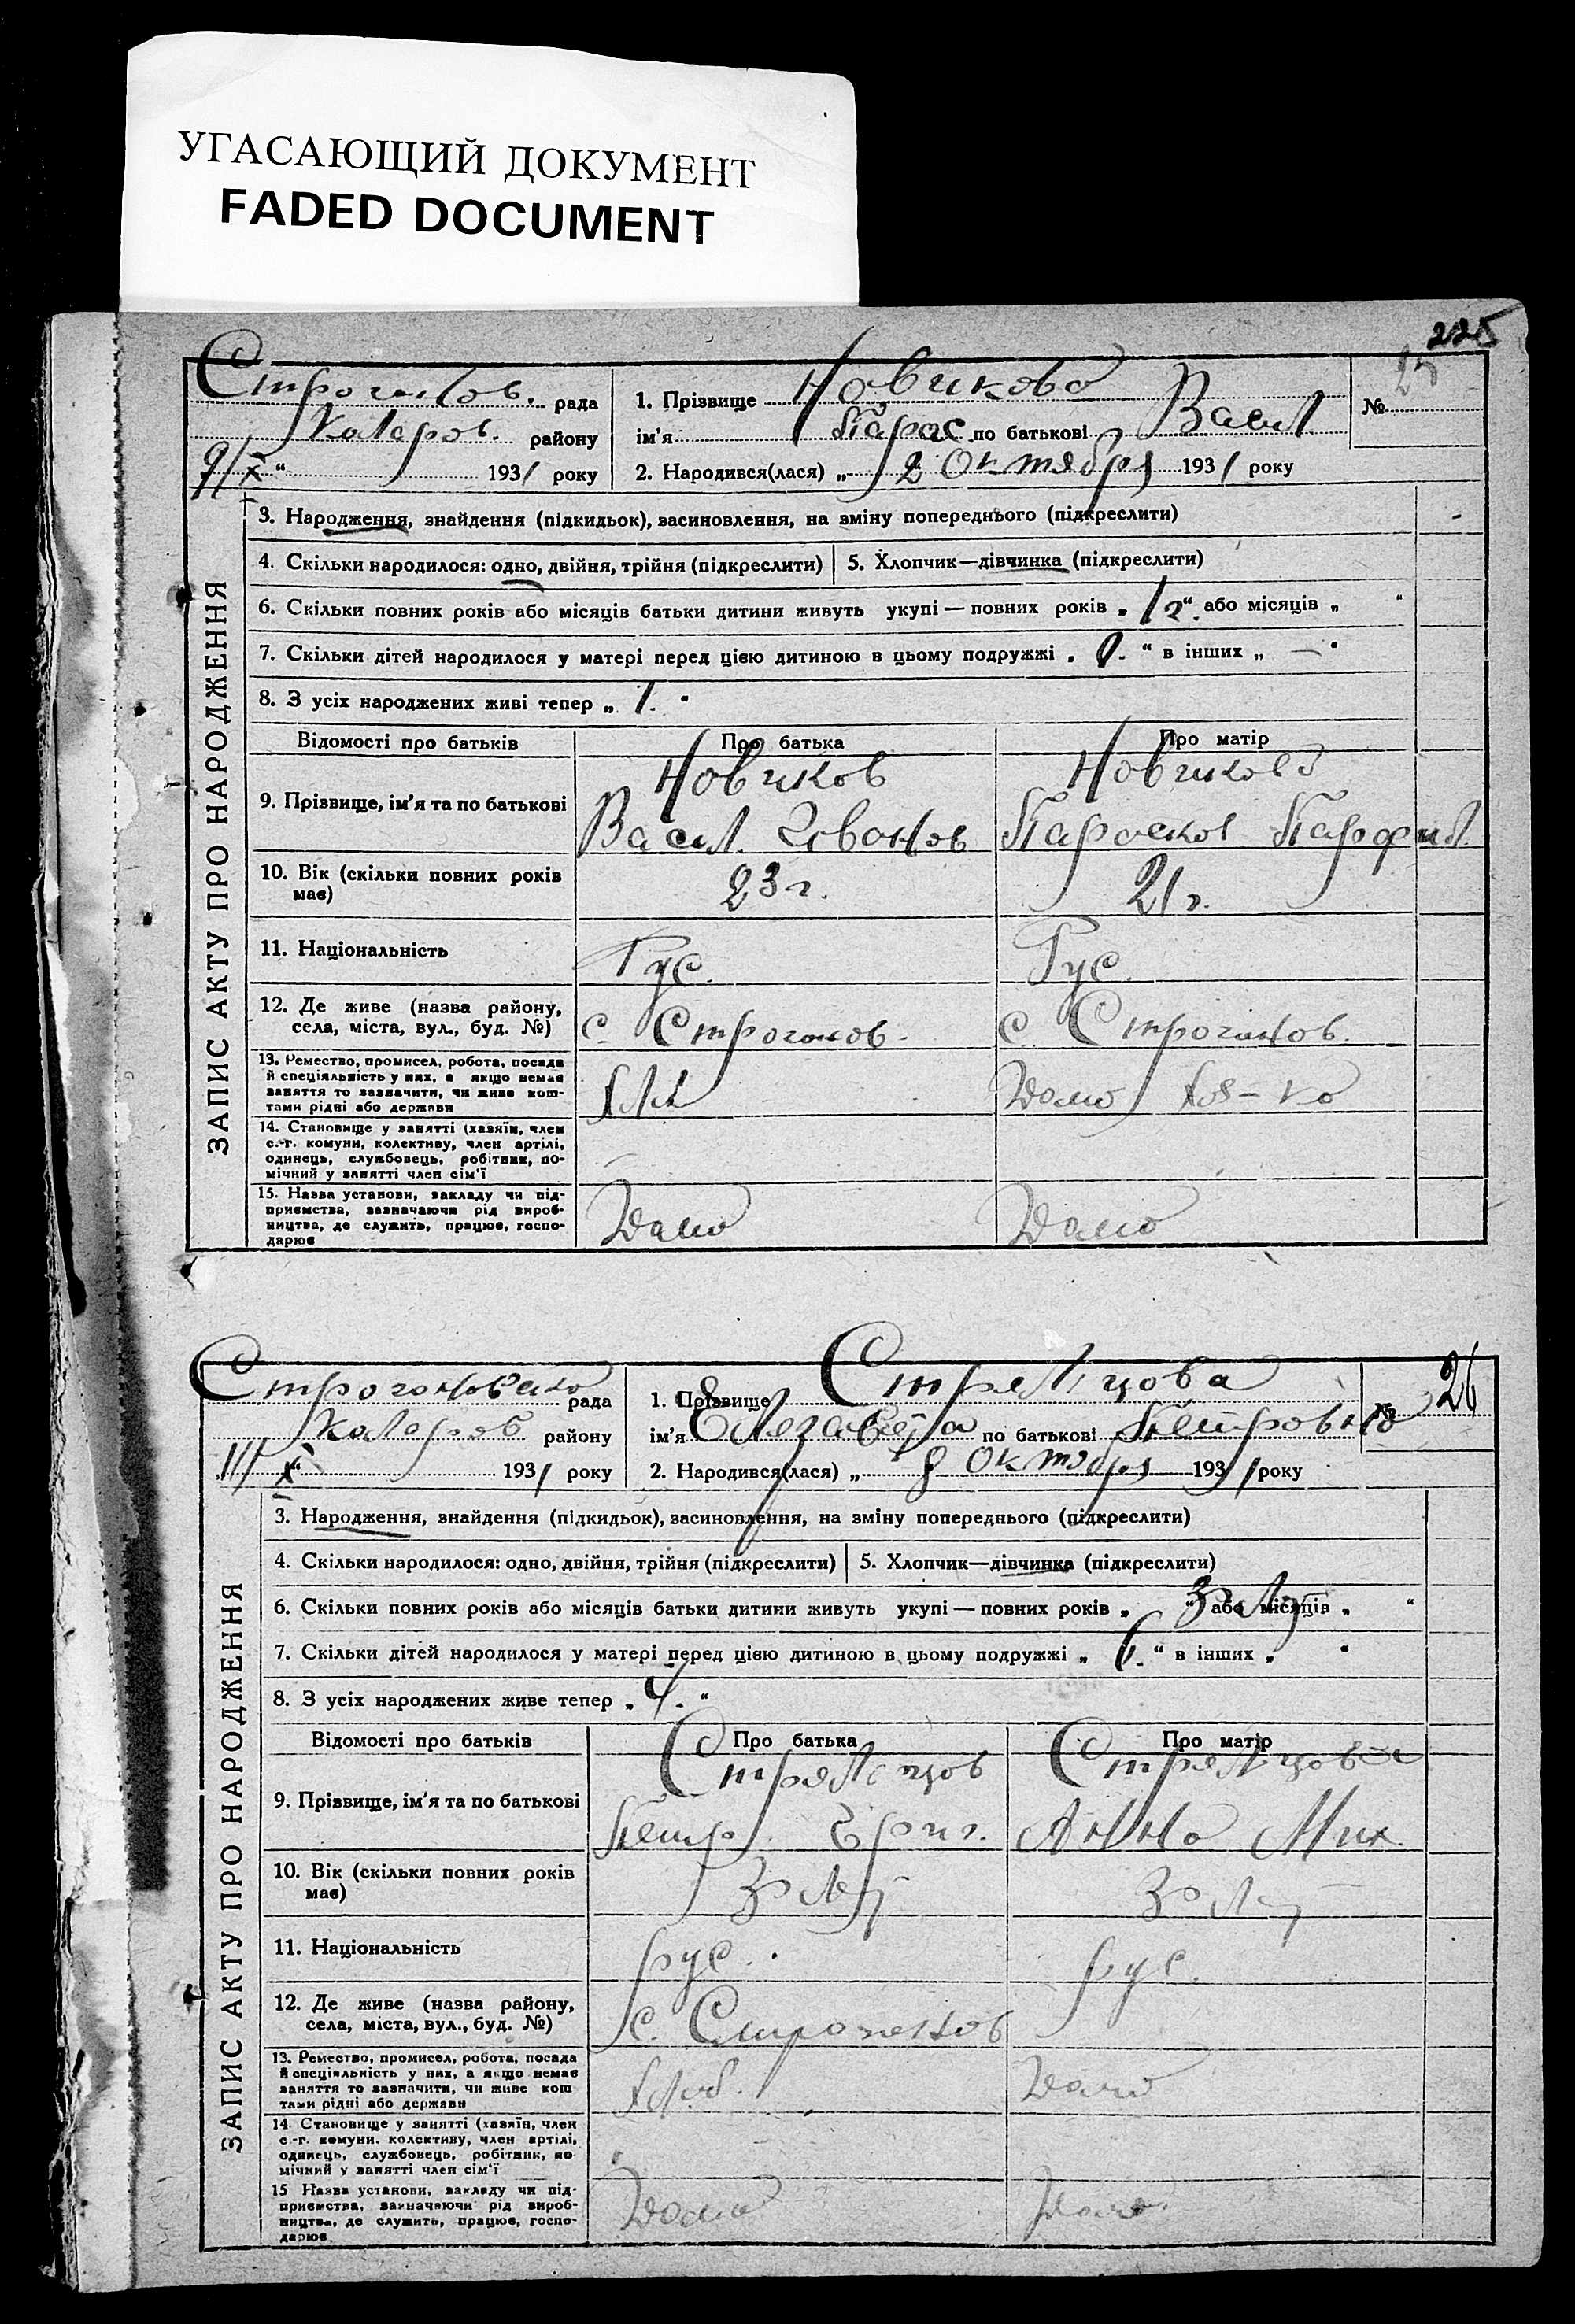 УГАСАЮЩИЙ ДОКУМЕНТ
FADED DOCUMENT
225
Строганов. рада
Коларов. району
9/X “ 1931 року
1. Прізвище Новикова
ім'я Парас. по батькові Васил
2. Народився(лася) „ 2 Октября 1931 року
№ 25
ЗАПИС АКТУ ПРО НАРОДЖЕННЯ
3. Народження, знайдення (підкидьок), засиновлення, на зміну попереднього (підкреслити)
4. Скільки народилося: одно, двійня, трійня (підкреслити) 5. Хлопчик—дівчинка (підкреслити)
6. Скільки повних років або місяців батьки дитини живуть укупі — повних років „ “ або місяців „ “
7. Скільки дітей народилося у матері перед цією дитиною в цьому подружжі „ “ в інших „ — “
8. З усіх народжених живі тепер „ 1. “
Відомості про батьків Про батька Про матір
9. Прізвище, ім'я та по батькові
Новиков
Васил. Иванов
Новикова
Парасков Парфил
10. Вік (скільки повних років має) 23 г. 21 г.
11. Національність Рус. Рус.
12. Де живе (назва району,
села, міста, вул., буд. №) с. Строганов. с. Строганов.
13. Ремество, промисел, робота, посада
й спеціяльність у них, а якщо немає
заняття то зазначити, чи живе кош-
тами рідні або держави
Хлб
Домо хоз-ка
14. Становище у занятті (хазяїн, член
с.-г. комуни, колективу, член артілі,
одинець, службовець, робітник, по-
мічний у занятті член сім'ї
15. Назва установи, закладу чи під-
приємства, зазначаючи рід вироб-
ництва, де служить, працює, госпо-
дарює
Дома Дома
Строгановско рада
Коларов району
11/X “ 1931 року
1. Прізвище Стрельцова
ім'я Елезавета по батькові Петровна
2. Народився(лася) „ 8 Октября 1931 року
№ 26
ЗАПИС АКТУ ПРО НАРОДЖЕННЯ
3. Народження, знайдення (підкидьок), засиновлення, на зміну попереднього (підкреслити)
4. Скільки народилося: одно, двійня, трійня (підкреслити) 5. Хлопчик—дівчинка (підкреслити)
6. Скільки повних років або місяців батьки дитини живуть укупі — повних років „ “ або місяців „ “
7. Скільки дітей народилося у матері перед цією дитиною в цьому подружжі „ “ в інших „ “
8. З усіх народжених живе тепер „ 4. “
Відомості про батьків Про батька Про матір
9. Прізвище, ім'я та по батькові
Стрельцов
Петр. Григ.
Стрельцова
Анна Мих.
10. Вік (скільки повних років має)
11. Національність рус. рус.
12. Де живе (назва району,
села, міста, вул., буд. №) с. Строганов
13. Ремество, промисел, робота, посада
й спеціяльність у них, а якщо немає
заняття то зазначити, чи живе кош
тами рідні або держави
Хлеб. Домо
14. Становище у занятті (хазяїн, член
с.-г. комуни. колективу, член артілі,
одинець, службовець, робітник, по
мічний у занятті член сім'ї
15 Назва установи, закладу чи під-
приємства, зазначаючи рід вироб-
ництва, де служить, працює, госпо-
дарює
Дома Дома